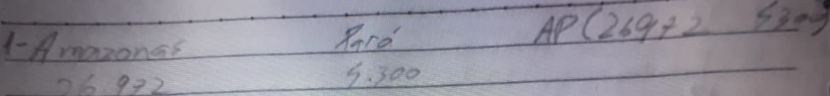 1-Amazonas Pará AP(26972 5300)
26.972 5.300